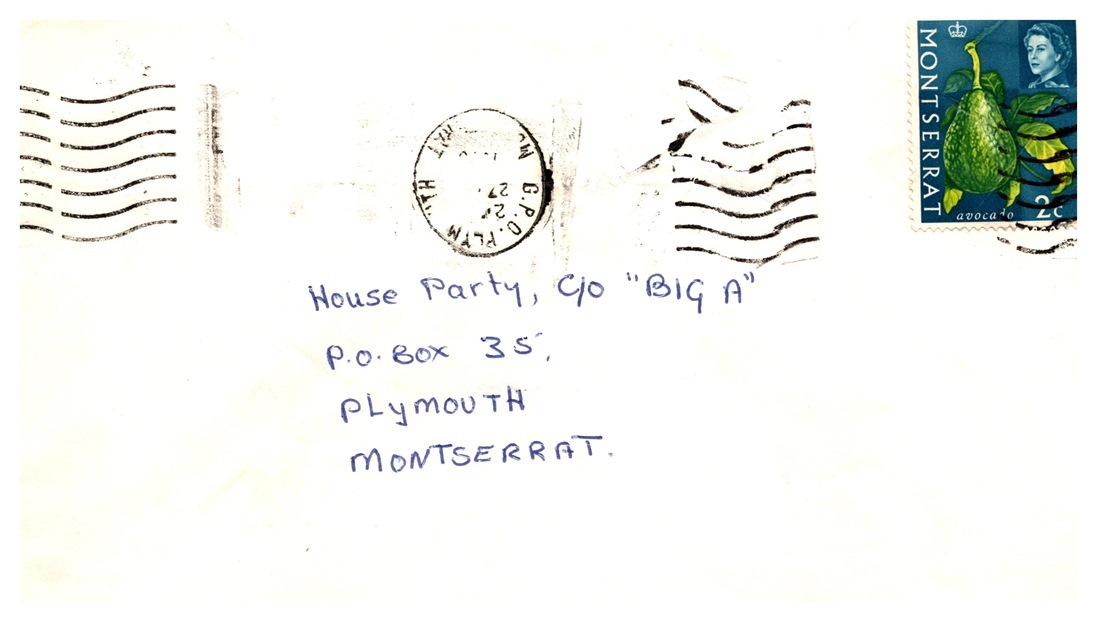 MONTSERRAT
avocado
2c
G.P.O. PLYM
27
House Party, C/o "BIG A"
P.O. Box 35,
PLyMOUTH
MONTSERRAT.